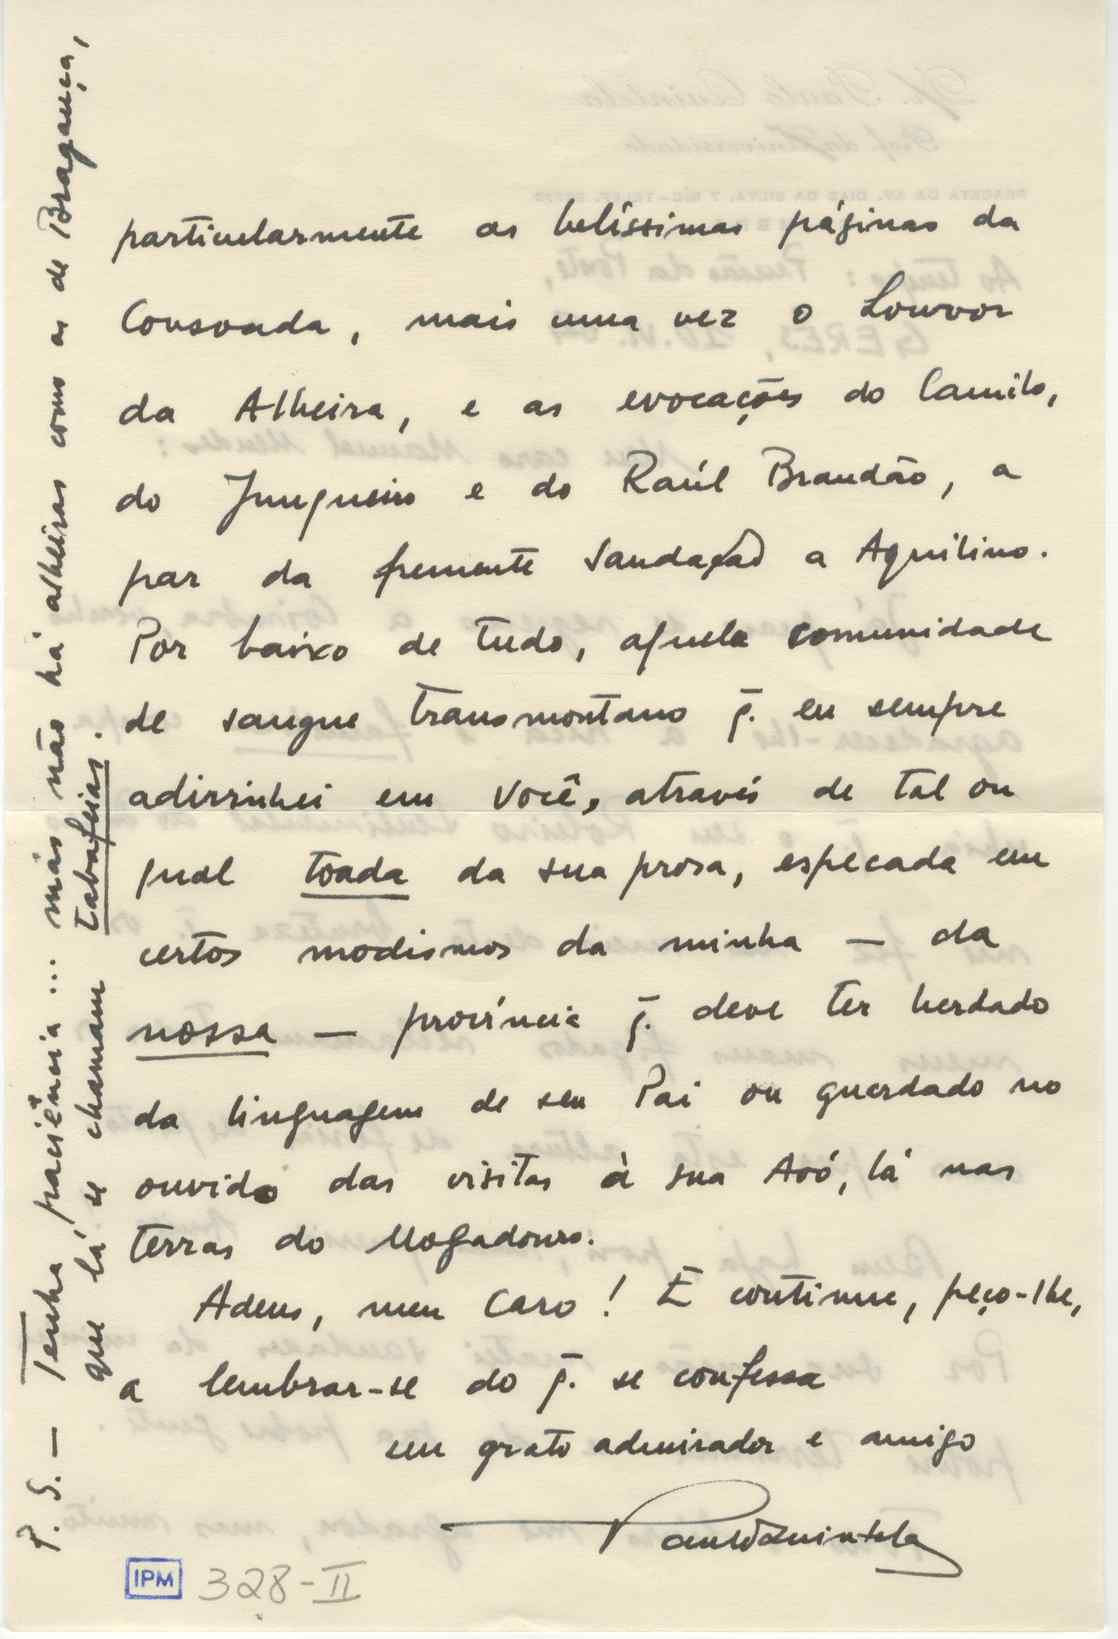 particularmente as belíssimas páginas da
Consoada, mais uma vez o Louvor
da Alheira, e as evocações do Camilo,
do Junqueiro e do Raúl Brandão, a
par da fremente saudação a Aquilino.
Por baixo de tudo, aquela comunidade
de sangue transmontano q̄. eu sempre
adivinhei em você, através de tal ou
qual toada da sua prosa, especada em
certos modismos da minha — da
nossa — província q̄. deve ter herdado
da linguagem de seu Pai ou guardado no
ouvido das visitas à sua Avó, lá nas
terras do Mogadouro.
Adeus, meu caro! E continue, peço-lhe,
a lembrar-se do q̄. se confessa
seu grato admirador e amigo
Paulo Quintela
P. S. — Tenha paciência... mas não há alheiras como as de Bragança,
que lá se chamam tabafeias.
IPM 328-II